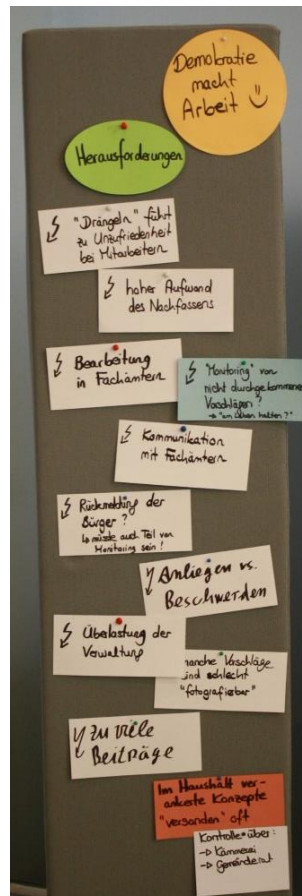 Demokratie
macht
Arbeit
Herausforderungen
"Drängeln" führt
zu Unzufriedenheit
bei Mitarbeitern
hoher Aufwand
des Nachfassens
Bearbeitung
in Fachämtern
"Monitoring" von
nicht durchgekommenen
Vorschlägen?
→ "am Leben halten?"
Kommunikation
mit Fachämtern
Rückmeldung der
Bürger?
↳ müsste auch Teil von
Monitoring sein!
Anliegen vs.
Beschwerden
Überlastung der
Verwaltung
manche Vorschläge
sind schlecht
"fotografierbar"
zu viele
Beiträge
Im Haushalt ver-
ankerte Konzepte
"versanden" oft
Kontrolle über:
→ Kämmerei
→ Gemeinderat